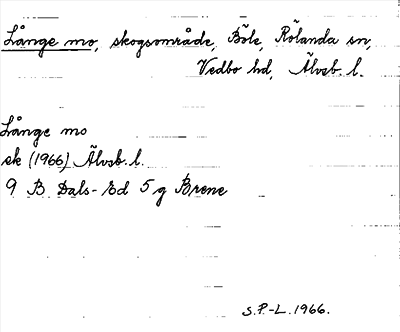 Långe mo, skogsområde, Böle, Rölanda sn,
Vedbo hd, Älvsb. l.
Långe mo
ek (1966) Älvsb. l.
9 B Dals-Ed 5 g Brene
S.P.-L. 1966.